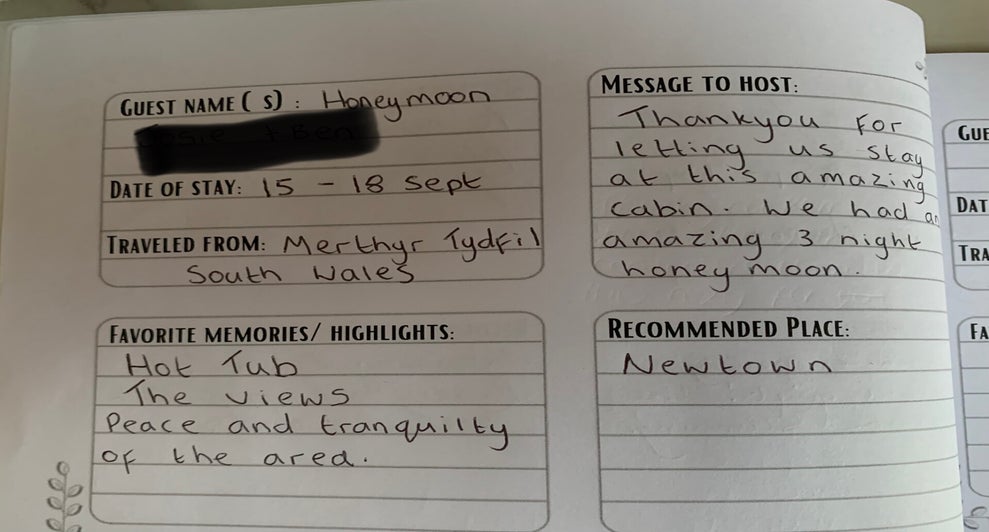 GUEST NAME( S) : Honeymoon
DATE OF STAY: 15 - 18 Sept
TRAVELED FROM: Merthyr Tydfil
South Wales
MESSAGE TO HOST:
Thankyou for
letting us stay
at this amazing
cabin. We had an
amazing 3 night
honey moon.
FAVORITE MEMORIES/ HIGHLIGHTS:
Hot Tub
The views
Peace and tranquilty
of the area.
RECOMMENDED PLACE:
Newtown
GUE
DAT
TRA
FA